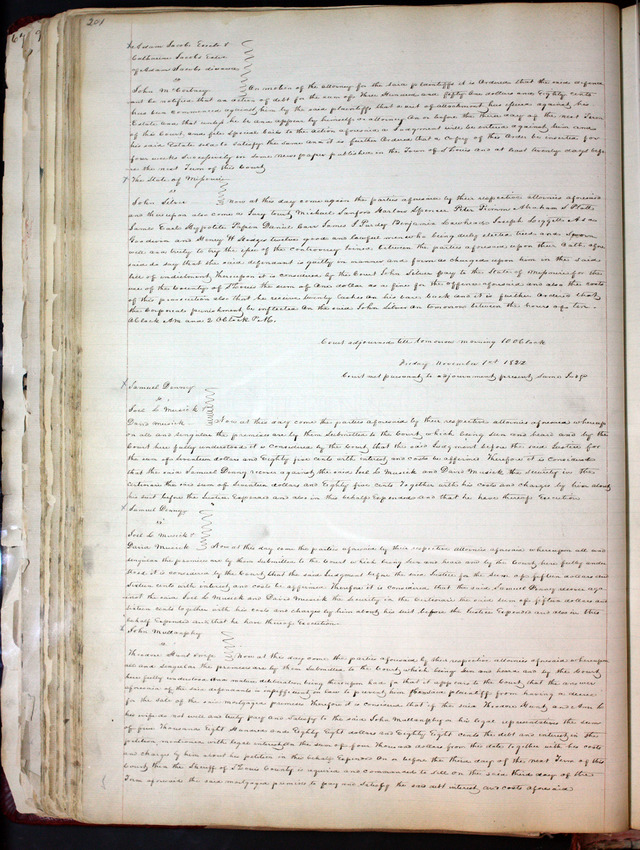 201
Adam Jacobs Execut &
Catharine Jacobs Extrx
of Adam Jacobs deceased
vs
John McCartney On motion of the attorney for the said plaintiffs it is Ordered that the said defendant
be notified that an action of debt for the sum of Three Hundred and fifty one dollars and Eighty cents
has been Commenced against him by the said plaintiffs that a writ of attachment has issued against his
Estate and that unless he be and appear by himself or attorney On or before the third day of the next Term
of this Court and file Special bail to the action aforesaid a Judgment will be entered against him and
his said Estate sold to satisfy the same and it is further Ordered that a Copy of this Order be inserted for
four weeks Successively in Some News paper published in the Town of St Louis and at least twenty days before
the next Term of this Court
The State of Missouri
vs
John Silver Now at this day come again the parties aforesaid by their respective attornies aforesaid
and thereupon also come a Jury towit Michael Sanford Spencer Peter Abraham S Platt
James Earl Hyppolite Papin Daniel Carr James S Pursley Benjamin Joseph Leggett Asa
Goodson and Henry W Hodges twelve good and lawful men who being duly elected tried and Sworn
well and truly to try the issue of the Controversy joined between the parties aforesaid upon their Oath afore
said do say that the said defendant is guilty in manner and form as charged upon him in the said
bill of indictment Thereupon it is considered by the Court John Silver pay to the State of Missouri for the
use of the County of St Louis the sum of One dollar as a fine for the offence aforesaid and also the costs
of this prosecution also that he receive twenty lashes on his bare back and it is further Ordered that
the Corporal punishment be inflicted On the said John Silver on tomorrow between the hours of ten
Oclock AM and 2 Oclock P.M.
Court adjourned till tomorrow morning 10 Oclock
Friday November 1st 1822
Court met pursuant to adjournment present Same Judge
Samuel Denny
vs
Joel L Musick
David Musick Now at this day come the parties aforesaid by their respective attornies aforesaid whereup
on all and singular the premises are by them Submitted to the Court which being seen and heard and by the
Court here fully understood it is considered by the Court that the said Judgment before the said Justice for
the sum of Seventeen dollars and Eighty five cents with interest and costs be affirmed Therefore it is considered
that the said Samuel Denny recover against the said Joel L Musick and David Musick the Security in the
Certiorari the said sum of Seventeen dollars and Eighty five cents Together with his costs and charges by him about
his suit before the Justice Expended and also in this behalf Expended and that he have thereof Execution
Samuel Denny
vs
Joel L Musick &
David Musick Now at this day come the parties aforesaid by their respective attornies aforesaid whereupon all and
singular the premises are by them Submitted to the Court which being seen and heard and by the Court here fully under
stood it is considered by the Court that the said Judgment before the said Justice for the sum of fifteen dollars and
Sixteen cents with interest and costs be affirmed Therefore it is considered that the said Samuel Denny recover aga
inst the said Joel L Musick and David Musick the Security in the Certiorari the said sum of fifteen dollars and
Sixteen cents together with his costs and charges by him about his suit before the Justice Expended and also in this
behalf Expended and that he have thereof Execution
John Mullanphy
vs
Theodore Hunt et ux Now at this day come the parties aforesaid by their respective attornies aforesaid whereupon
all and singular the premises are by them Submitted to the Court which being seen and heard and by the Court
here fully understood and mature deliberation being thereupon had for that it appears to the Court that the answer
aforesaid of the said defendants is insufficient in law to prevent him the said plaintiff from having a decree
for the sale of the said mortgaged premises Therefore it is considered that if the said Theodore Hunt and Ann L
his wife do not well and truly pay and Satisfy to the said John Mullanphy or his legal representatives the sum
of five Thousand Eight Hundred and Eighty Eight dollars and Eighty Eight cents the debt and interest in the
petition mentioned with legal interest on the sum of four Thousand dollars from this date together with his costs
and charges by him about his petition in this behalf Expended On or before the third day of the next Term of this
Court then the Sheriff of St Louis County is required and commanded to sell on the said third day of the
Term aforesaid the said mortgaged premises to pay and Satisfy the said debt interest and costs aforesaid